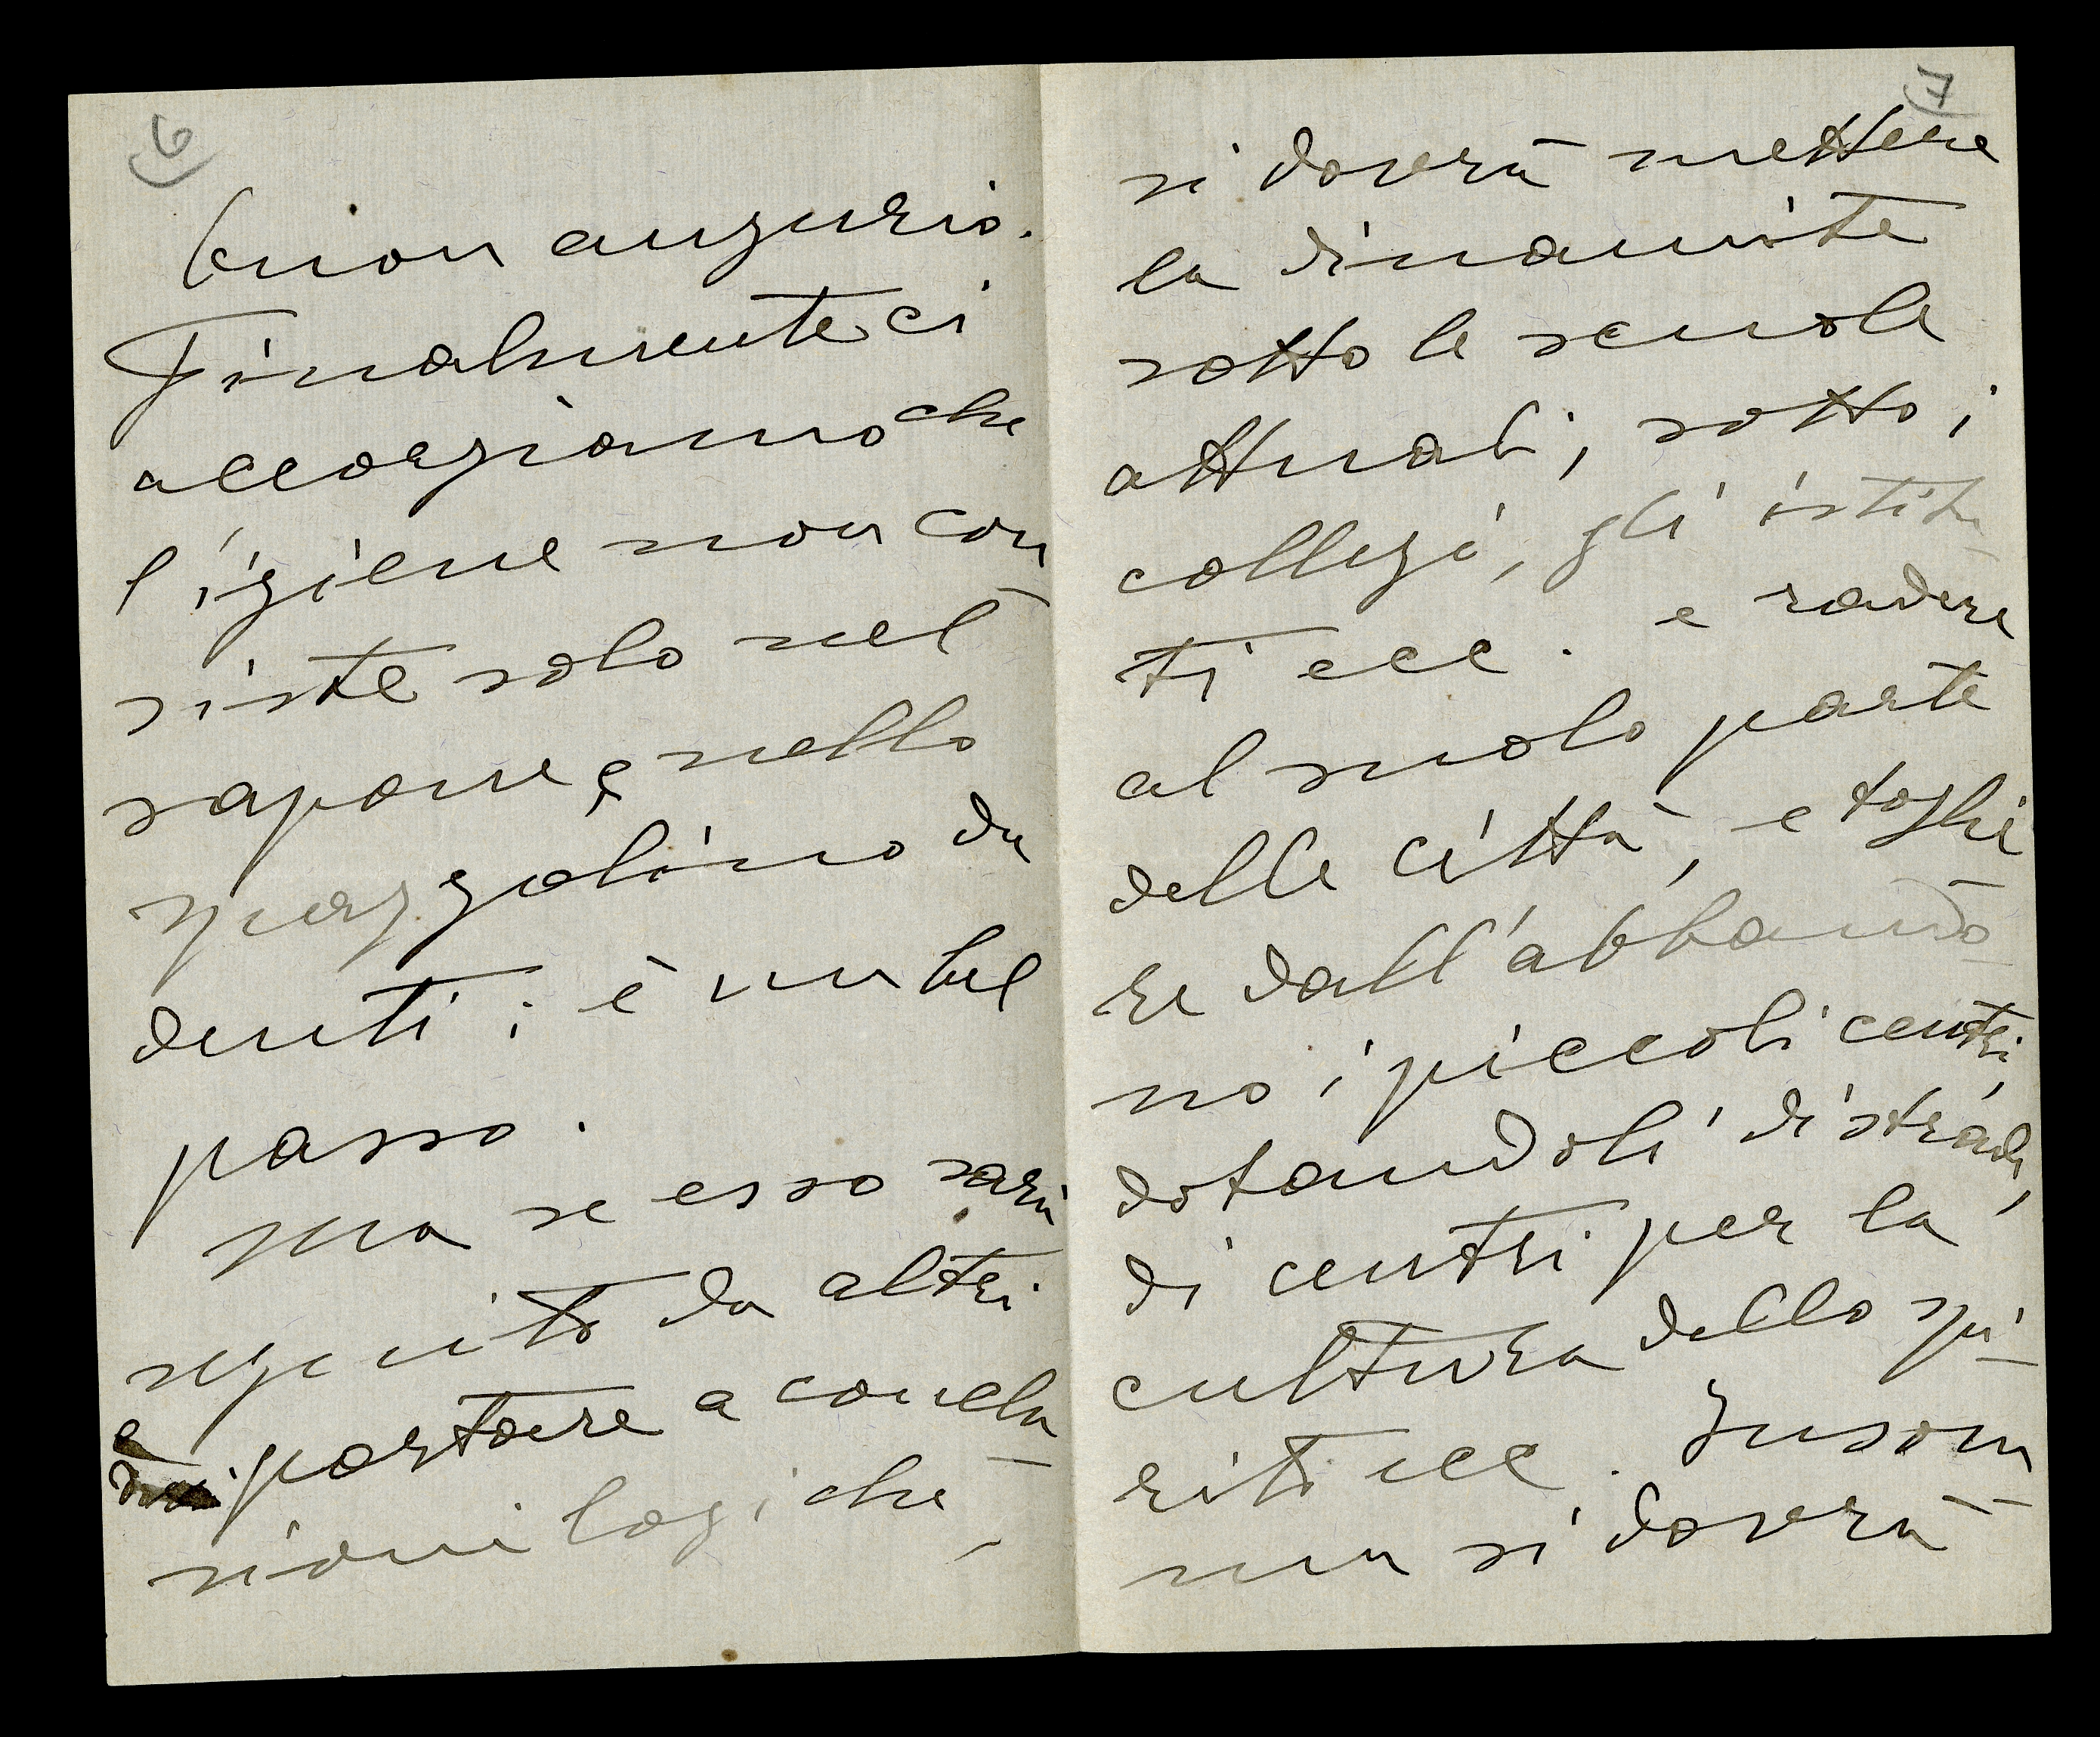 6
buon augurio.
Finalmente ci
accorgiamo che
l'igiene non con
siste solo nel
sapone e nello
spazzolino da
denti; è un bel
passo.
ma se esso sarà
seguito da altri
e
portare a conclu
sioni logiche,
7
si dovrà mettere
la dinamite
sotto le scuole
attuali, sotto i
collegi, gli istitu
ti ecc. e radere
al suolo parte
delle città, e toglie
re dall'abbando
no i piccoli centri,
dotandoli di strade,
di centri per la
cultura dello spi
rito ecc. Insom
ma si dovrà